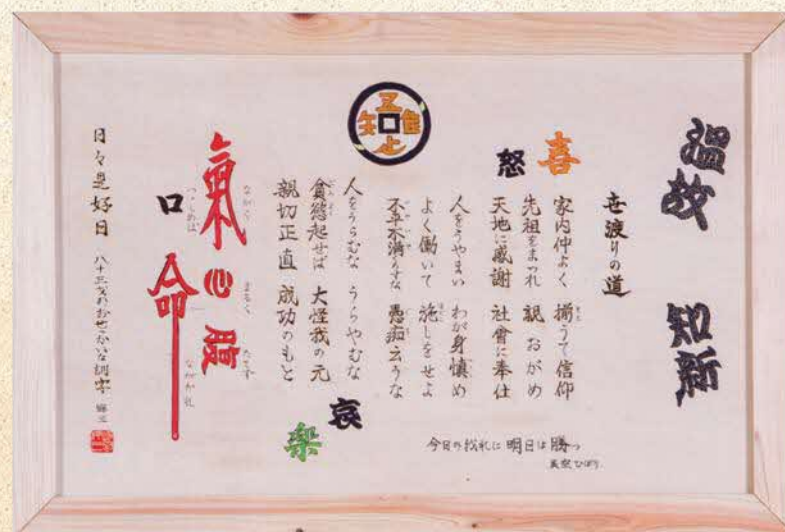 溫故 知新
世渡りの道
喜
怒
家内仲よく 揃うて信仰
先祖をまつれ 親おがめ
天地に感謝 社會に奉仕
人をうやまい わが身慎め
よく働いて 施しをせよ
不平不満 愚痴云うな
人をうらむな うらやむな
貪慾起せば 大怪我の元
親切正直 成功のもと
哀
楽
今日の我れに 明日は勝つ
美空ひばり
吾唯足知
氣 心 腹
ながく まるく たてず
口 命
つゝしめば ながかれ
日々是好日